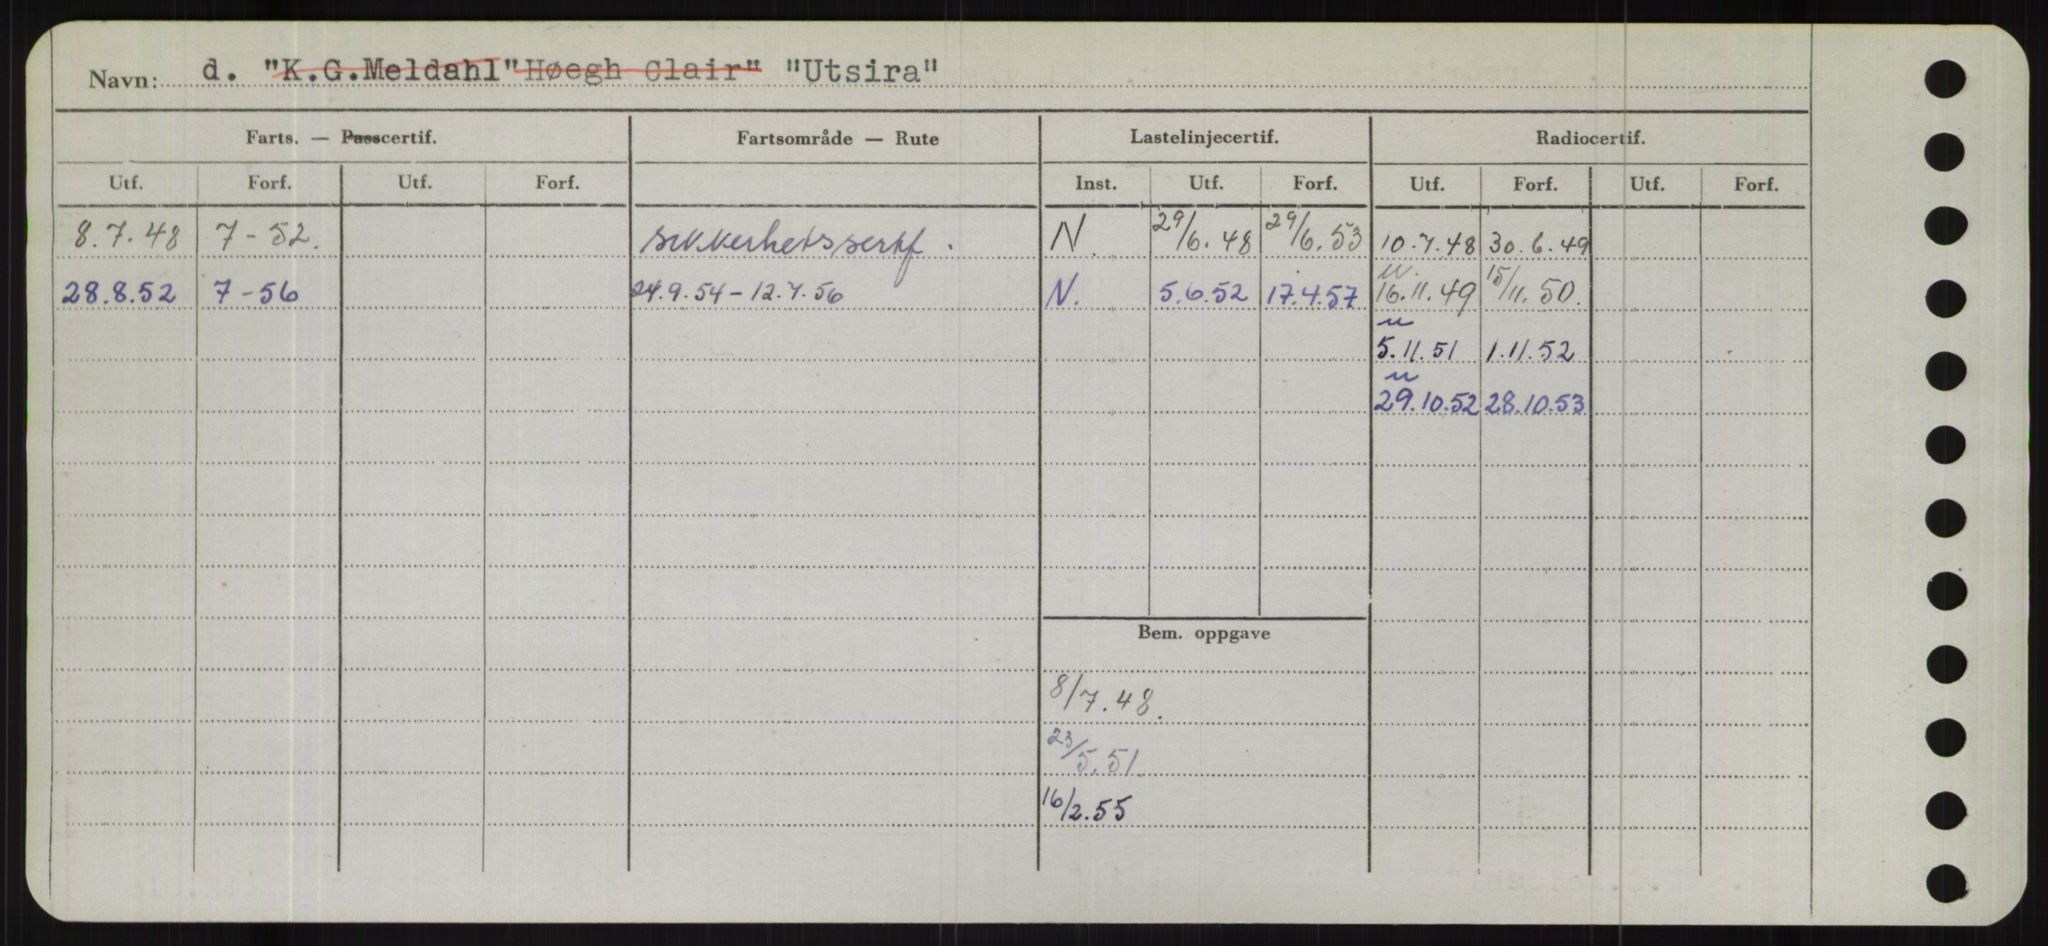 Navn: d. "K.G.Meldahl" Høegh Clair" "Utsira"
Farts. — Passcertif. Fartsområde — Rute Lastelinjecertif. Radiocertif.
Utf. Forf. Utf. Forf. Inst. Utf. Forf. Utf. Forf. Utf. Forf.
8.7.48 7-52. sikkerhetssertf. N 29/6.48 29/6.53 10.7.48 30.6.49
28.8.52 7-56 24.9.54-12.7.56 N. 5.6.52 17.4.57 16.11.49 15/11.50.
5.11.51 1.11.52
29.10.52 28.10.53
Bem. oppgave
8/7.48.
23/5.51
16/2.55